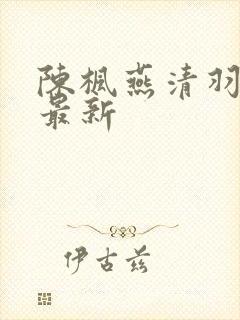 陳楓燕清羽
最新
伊古兹